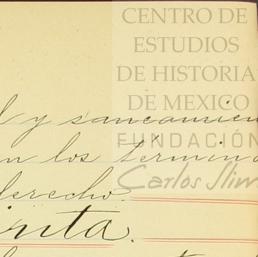 CENTRO DE
ESTUDIOS
DE HISTORIA
DE MEXICO
FUNDACIÓN
Carlos Slim
y saneamien
los términ
derecho.